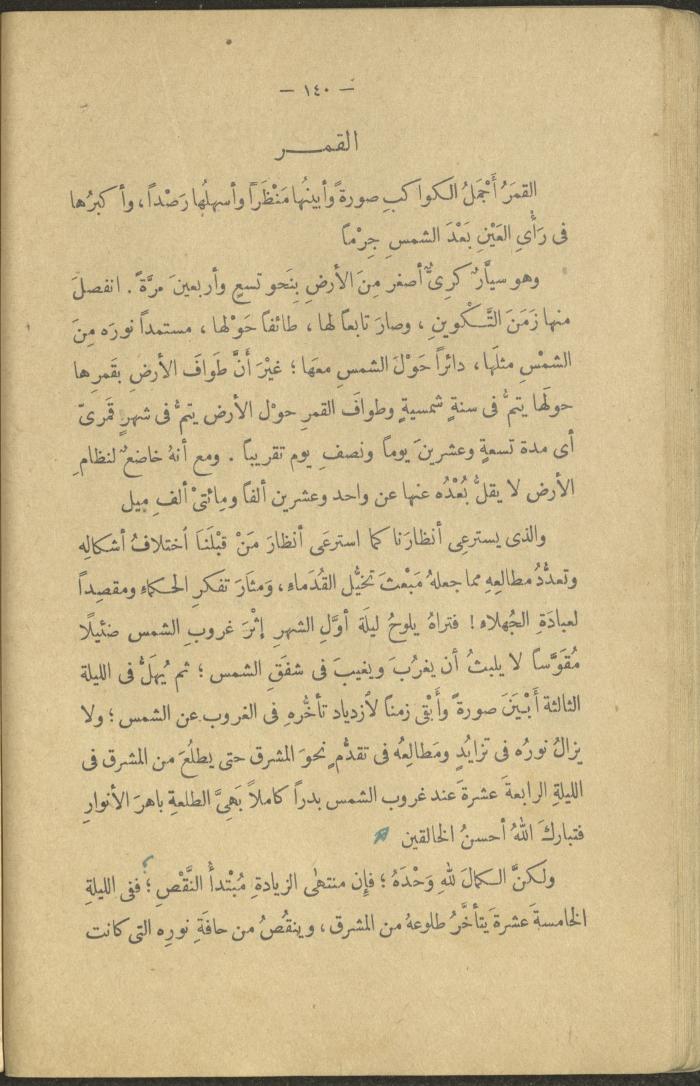 — ١٤٠ —
القمـــر
القمَرُ أَجْمَلُ الكواكبِ صورةً وأبينُها مَنْظَراً وأسهلُها رَصْداً ، وأكبرُها
فى رَأْىِ العَيْنِ بَعْدَ الشمسِ جِرْماً
وهو سيَّارٌ كرِىٌّ أصغر مِنَ الأرضِ بِنَحو تسعٍ وأربعينَ مرَّةً . انفصلَ
منها زَمَنَ التَّكْوينِ ، وصارَ تابعاً لها ، طائفاً حَوْلها ، مستمداً نورَه مِنَ
الشمْسِ مثلَها ، دائراً حَوْلَ الشمسِ معَها ؛ غيْرَ أَنَّ طَوافَ الأرضِ بقَمرِها
حولَها يتمُّ فى سنةٍ شمسيةٍ وطوافَ القمرِ حوْل الأرض يتمُّ فى شهرٍ قمَرىّ
أى مدة تسعةٍ وعشرينَ يوماً ونصفِ يوم تقريباً . ومع أنهُ خاضعٌ لنظامِ
الأرض لا يقلُّ بُعْدُه عنها عن واحد وعشرين ألفاً ومِائتىْ ألفِ ميل
والذى يسترعِى أنظارَنا كما استرعَى أنظارَ مَنْ قبْلَنا اُختلافُ أشكالِه
وتعدُّدُ مطالعِهِ مما جعلهُ مَبْعثَ تخيُّل القُدَماءِ ، وَمثارَ تفكرِ الحكماءِ ومقصِداً
لعبادَةِ الجُهلاءِ ! فتراهُ يلوحُ ليلَة أوَّلِ الشهرِ إثْرَ غروبِ الشمس ضئيلًا
مُقوَّساً لا يلبثُ أن يغرُبَ ويغيبَ فى شفَقِ الشمس ؛ ثم يُهلُّ فى الليلة
الثالثة أَبْيَنَ صورةً وأَبْقى زمناً لاُزدياد تأخُّرِهِ فى الغروب عن الشمس ؛ ولا
يزالُ نورُه فى تزايُدٍ ومَطالِعُه فى تقدُّمٍ نحوَ المشرق حتى يطلُعَ من المشرق فى
الليلةِ الرابعةَ عشرةَ عند غروب الشمس بدراً كاملاً بَهِىَّ الطلعةِ باهرَ الأنوارِ
فتباركَ اللهُ أحسنُ الخالقين
ولكنَّ الكمالَ للهِ وَحْدَهُ ؛ فإن منتهَى الزيادةِ مُبْتدأُ النَّقْصِ ؛ ففى الليلةِ
الخامسةَ عشرةَ يتأخَّرُ طلوعهُ من المشرق ، وينقُصُ من حافَةِ نورِه التى كانت